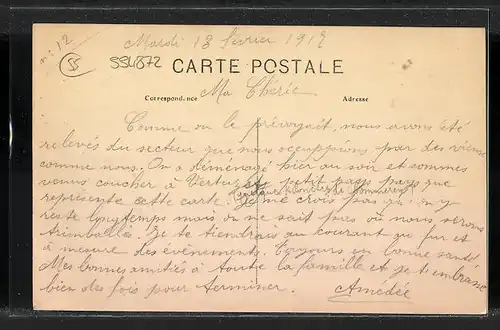 n: 12
Mardi 18 février 1919
SS
554872
CARTE POSTALE
Correspondance
Adresse
Ma Chérie
Comme on le prévoyait, nous avons été
relevés du secteur que nous occuppions par des vieux
comme nous. On a déménagé hier au soir et sommes
venus coucher à petit pays que
représente cette carte. Je ne crois pas qu'on y
reste longtemps mais on ne sait pas où nous serons
trimballés. Je te tiendrais au courant au fur et
à mesure des événements. Toujours en bonne santé
Mes bonnes amitiés à toute la famille et je t'embrasse
bien des fois pour terminer. Amédée